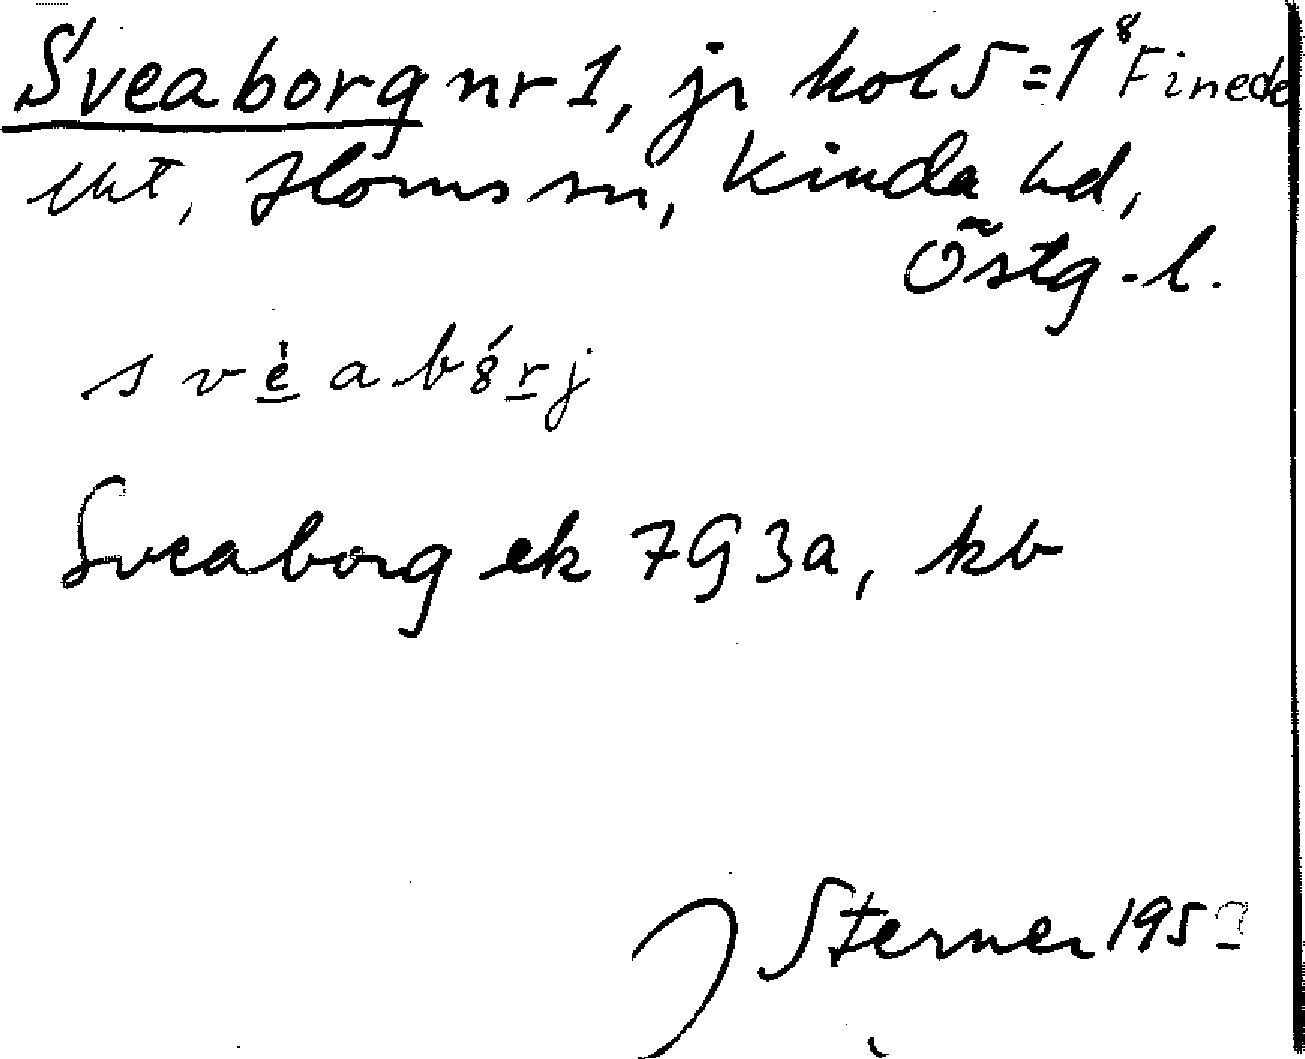 Sveaborg nr 1, jr kol 5 = 1⁸ Finede
Horns sn, Kinda hd,
Östg.l.
s v è a b ɔ́ r j
Sveaborg ek 7G3a, kb
J Sterner 195